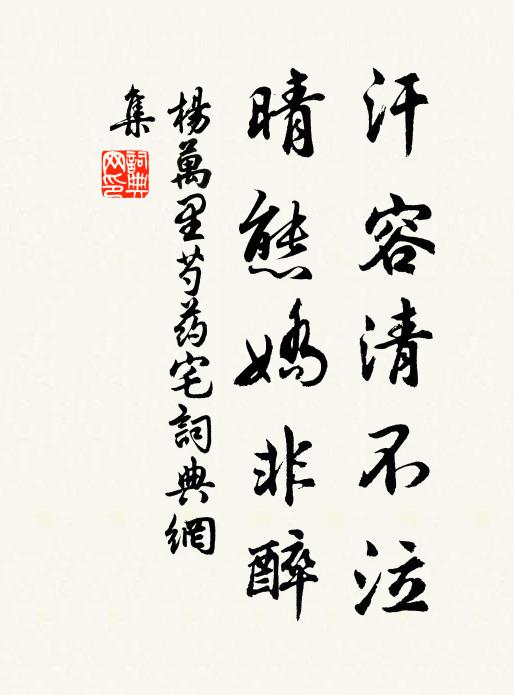 汗容清不泣
晴態嬌非醉
楊萬里芍药宅詞典網
集
詞典网印